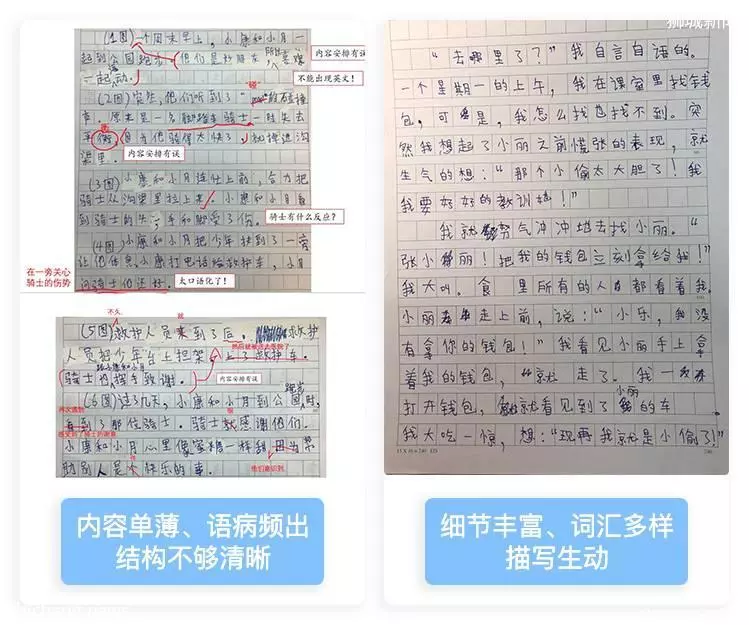 (1图)一个周末早上，小康和小月一
起到公园跑步，他们是好朋友，所以喜欢
内容安排有误
一起活动。
不能出现英文！
(2图)突然，他们听到了"碰"的碰撞
声。原来是一名脚踏车骑士一时失去
平衡，自，他骑得太快了，就掉进沟
渠里。
内容安排有误
(3图)小康和小月连忙上前，合力把
骑士从沟里拉上来。小康和小月看
到骑士的手和脚受了伤。
骑士有什么反应？
(4图)小康和小月把少年扶到了一旁
让他休息。小康打电话给救护车，小月
在一旁关心
骑士的伤势
问骑士们还好。
太口语化了！
不久，
就
(5图)救护人员来到了后，救护
然后就被送去医院了
人员把少年台上担架，上了救护车。
骑士也挥手致谢。
内容安排有误
跑步
(6图)过了几天，小康和小月到公园时，
再次遇到
看到了那位骑士。骑士就感谢他们。
感受到了骑士的谢意
小康和小月心里像蜜糖一样甜，因为帮
助别人是个快乐的事。
他们意识到，
内容单薄、语病频出
结构不够清晰
狮城新闻
"去哪里了？"我自言自语的。
一个星期一的上午，我在课室里找钱
包，可是，我怎么找也找不到。突
然我想起了小丽之前慌张的表现，就
生气的想："那个小偷太大胆了！我
我要好好的教训她！"
我就怒气冲冲地去找小丽。"
张小丽！把我的钱包立刻拿给我！"
我大叫。食 里所有的人都看着我，
小丽走上前，说："小乐，我没
有拿你的钱包！"我看见小丽手上拿
着我的钱包，"就 走了。我一
小丽
打开钱包，就看见到了我的车
我大吃一惊，想："现再我就是小偷了！"
15 X 16 = 240
细节丰富、词汇多样
描写生动